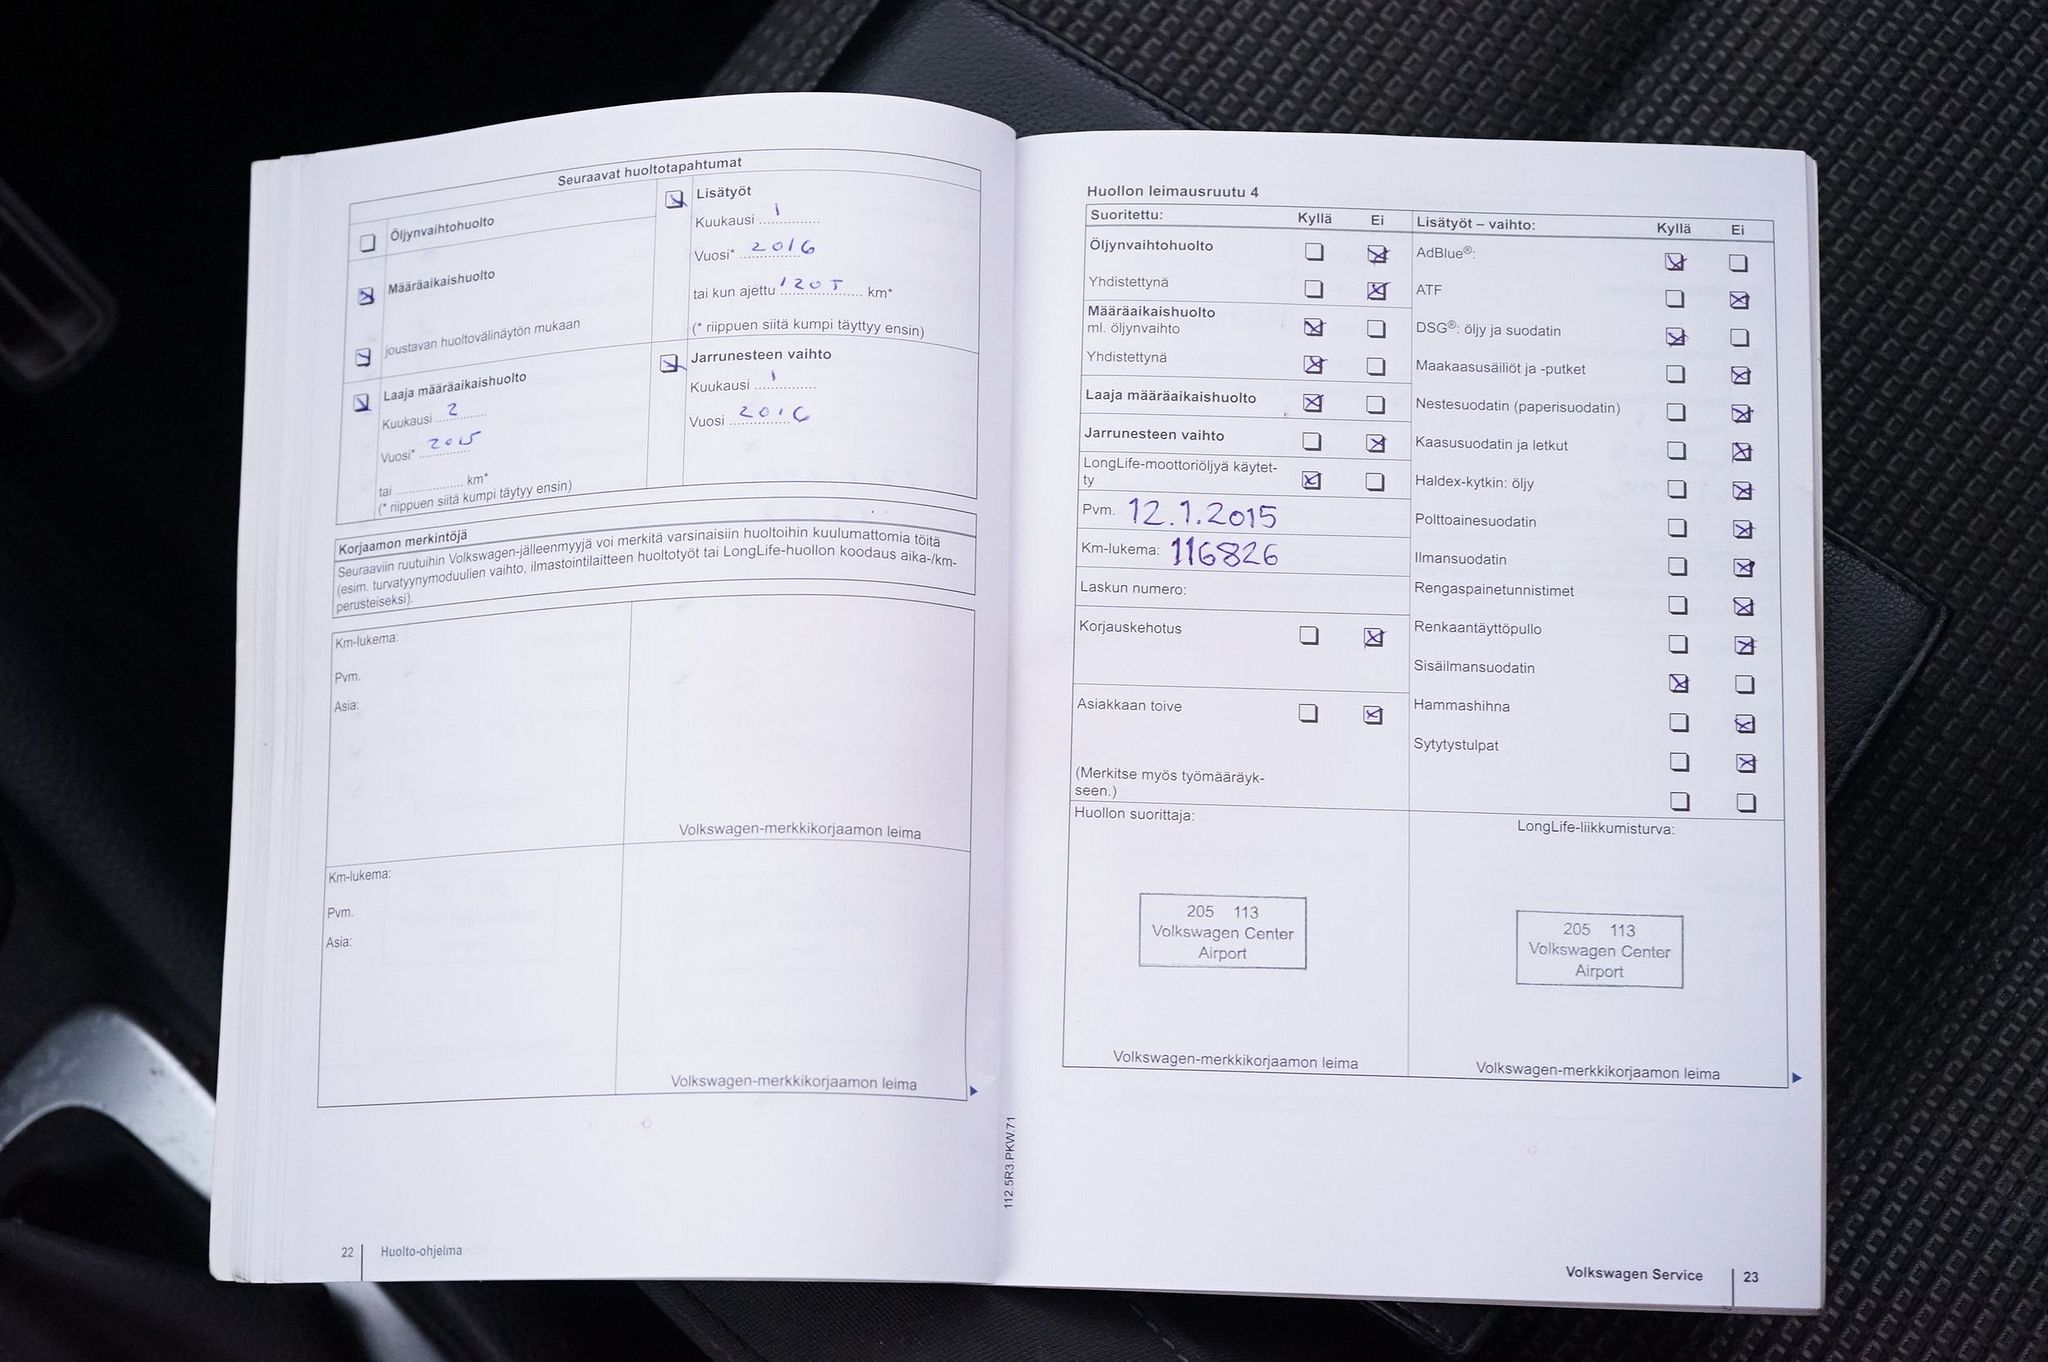 Seuraavat huoltotapahtumat
Öljynvaihtohuolto
Määräaikaishuolto
joustavan huoltovälinäytön mukaan
Laaja määräaikaishuolto
Kuukausi 2
Vuosi* 2015
tai .................... km*
(* riippuen siitä kumpi täytyy ensin)
Lisätyöt
Kuukausi 1
Vuosi* 2016
tai kun ajettu 120T km*
(* riippuen siitä kumpi täyttyy ensin)
Jarrunesteen vaihto
Kuukausi 1
Vuosi 2016
Korjaamon merkintöjä
Seuraaviin ruutuihin Volkswagen-jälleenmyyjä voi merkitä varsinaisiin huoltoihin kuulumattomia töitä
(esim. turvatyynymoduulien vaihto, ilmastointilaitteen huoltotyöt tai LongLife-huollon koodaus aika-/km-
perusteiseksi).
Km-lukema:
Pvm.
Asia:
Volkswagen-merkkikorjaamon leima
Km-lukema:
Pvm.
Asia:
Volkswagen-merkkikorjaamon leima
22 Huolto-ohjelma
112.5R3.PKW.71
Huollon leimausruutu 4
Suoritettu: Kyllä Ei
Öljynvaihtohuolto
Yhdistettynä
Määräaikaishuolto
ml. öljynvaihto
Yhdistettynä
Laaja määräaikaishuolto
Jarrunesteen vaihto
LongLife-moottoriöljyä käytet-
ty
Pvm. 12.1.2015
Km-lukema: 116826
Laskun numero:
Korjauskehotus
Asiakkaan toive
(Merkitse myös työmääräyk-
seen.)
Lisätyöt – vaihto: Kyllä Ei
AdBlue®:
ATF
DSG®: öljy ja suodatin
Maakaasusäiliöt ja -putket
Nestesuodatin (paperisuodatin)
Kaasusuodatin ja letkut
Haldex-kytkin: öljy
Polttoainesuodatin
Ilmansuodatin
Rengaspainetunnistimet
Renkaantäyttöpullo
Sisäilmansuodatin
Hammashihna
Sytytystulpat
Huollon suorittaja:
205 113
Volkswagen Center
Airport
Volkswagen-merkkikorjaamon leima
LongLife-liikkumisturva:
205 113
Volkswagen Center
Airport
Volkswagen-merkkikorjaamon leima
Volkswagen Service 23